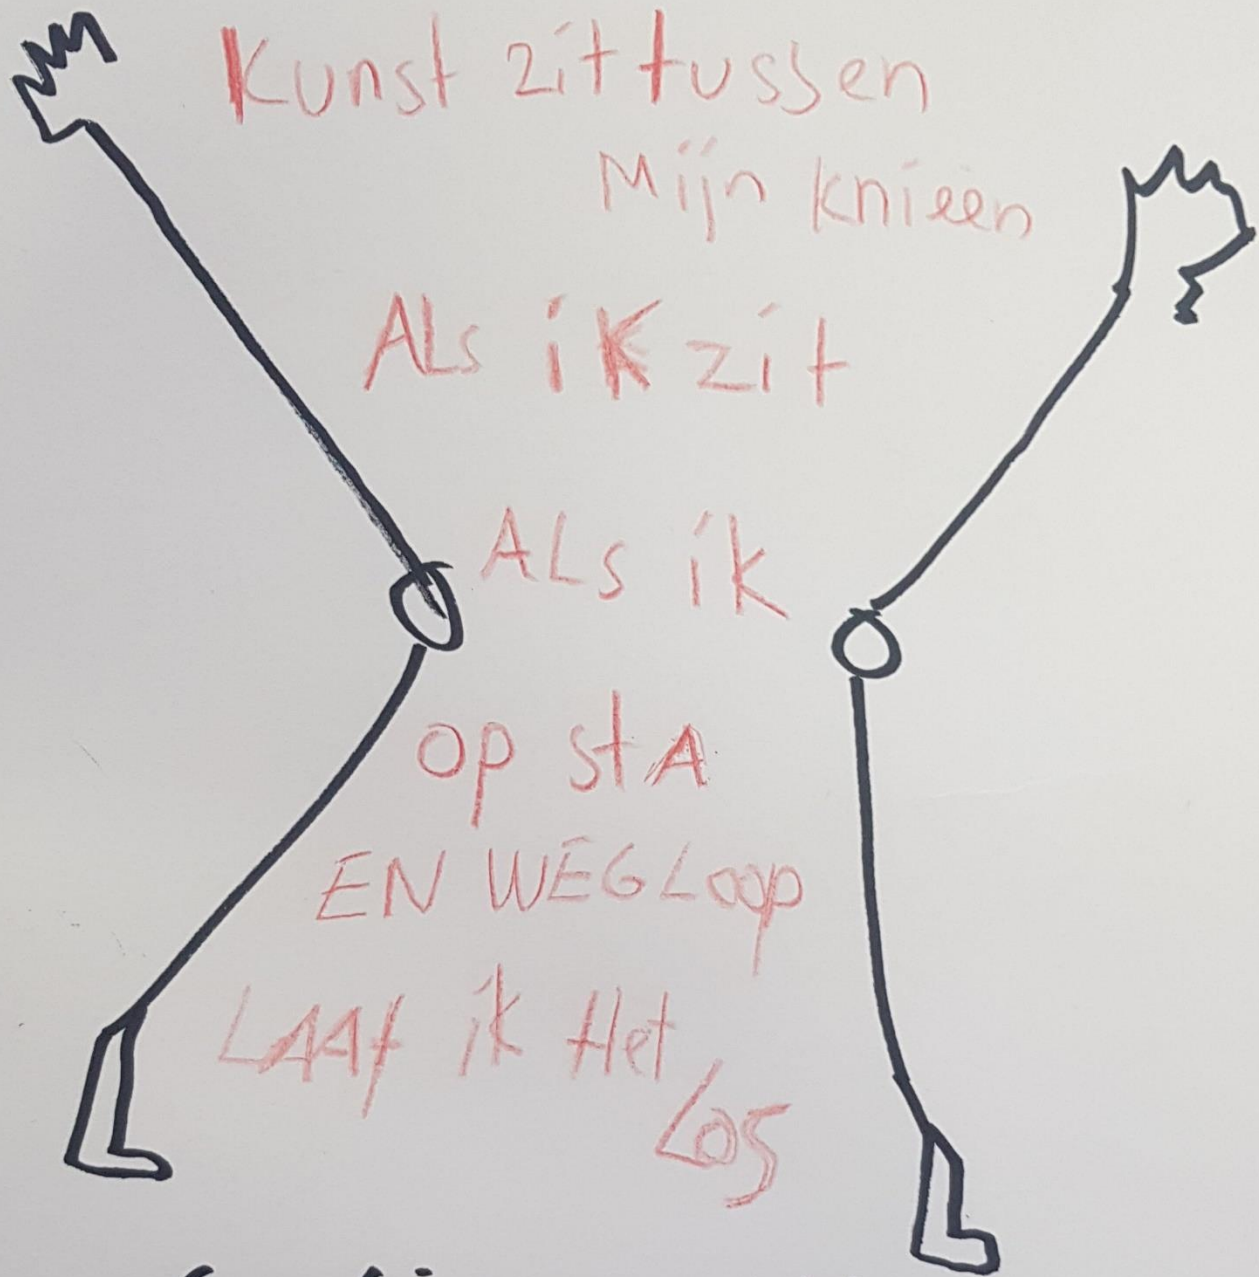 Kunst zit tussen
Mijn knieën
ALs ik zit
ALs ik
op stA
EN WEGLoop
LAAt ik Het
Los